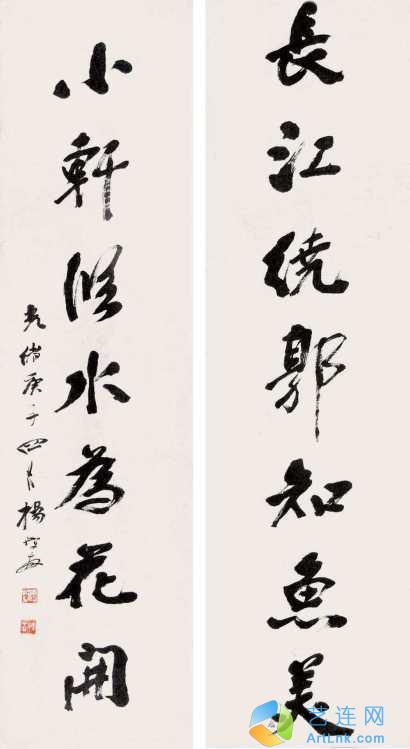 長江繞郭知魚美
小軒臨水為花開
光緒庚子四月楊守敬
艺连网
ArtLnk.com